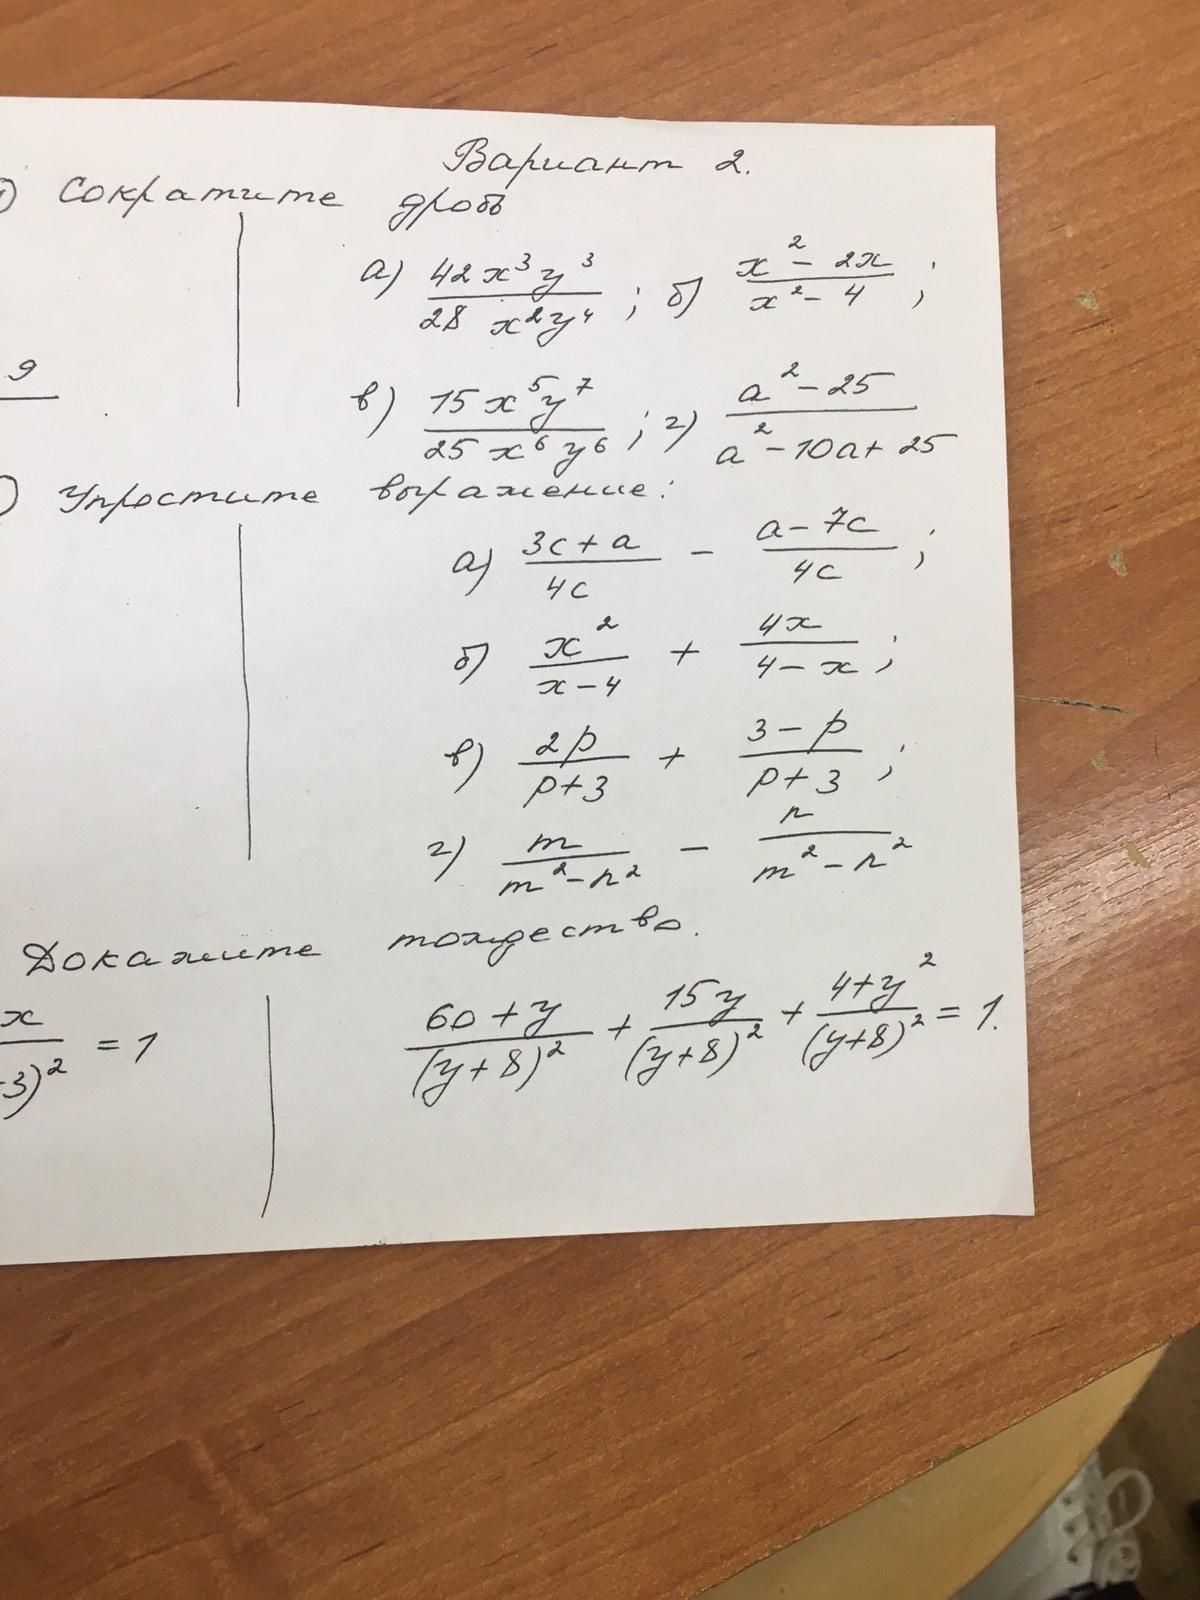 Вариант 2.
1) Сократите дробь
а) 42x³y³ / 28 x²y⁴ ; б) x² - 2x / x² - 4 ;
9
в) 15x⁵y⁷ / 25x⁶y⁶ ; г) a² - 25 / a² - 10a + 25
) Упростите выражение:
а) 3c + a / 4c - a - 7c / 4c ;
б) x² / x - 4 + 4x / 4 - x ;
в) 2p / p + 3 + 3 - p / p + 3 ;
г) m / m² - n² - n / m² - n²
Докажите тождество.
x / -3)² = 1
60 + y / (y + 8)² + 15y / (y + 8)² + 4 + y² / (y + 8)² = 1.